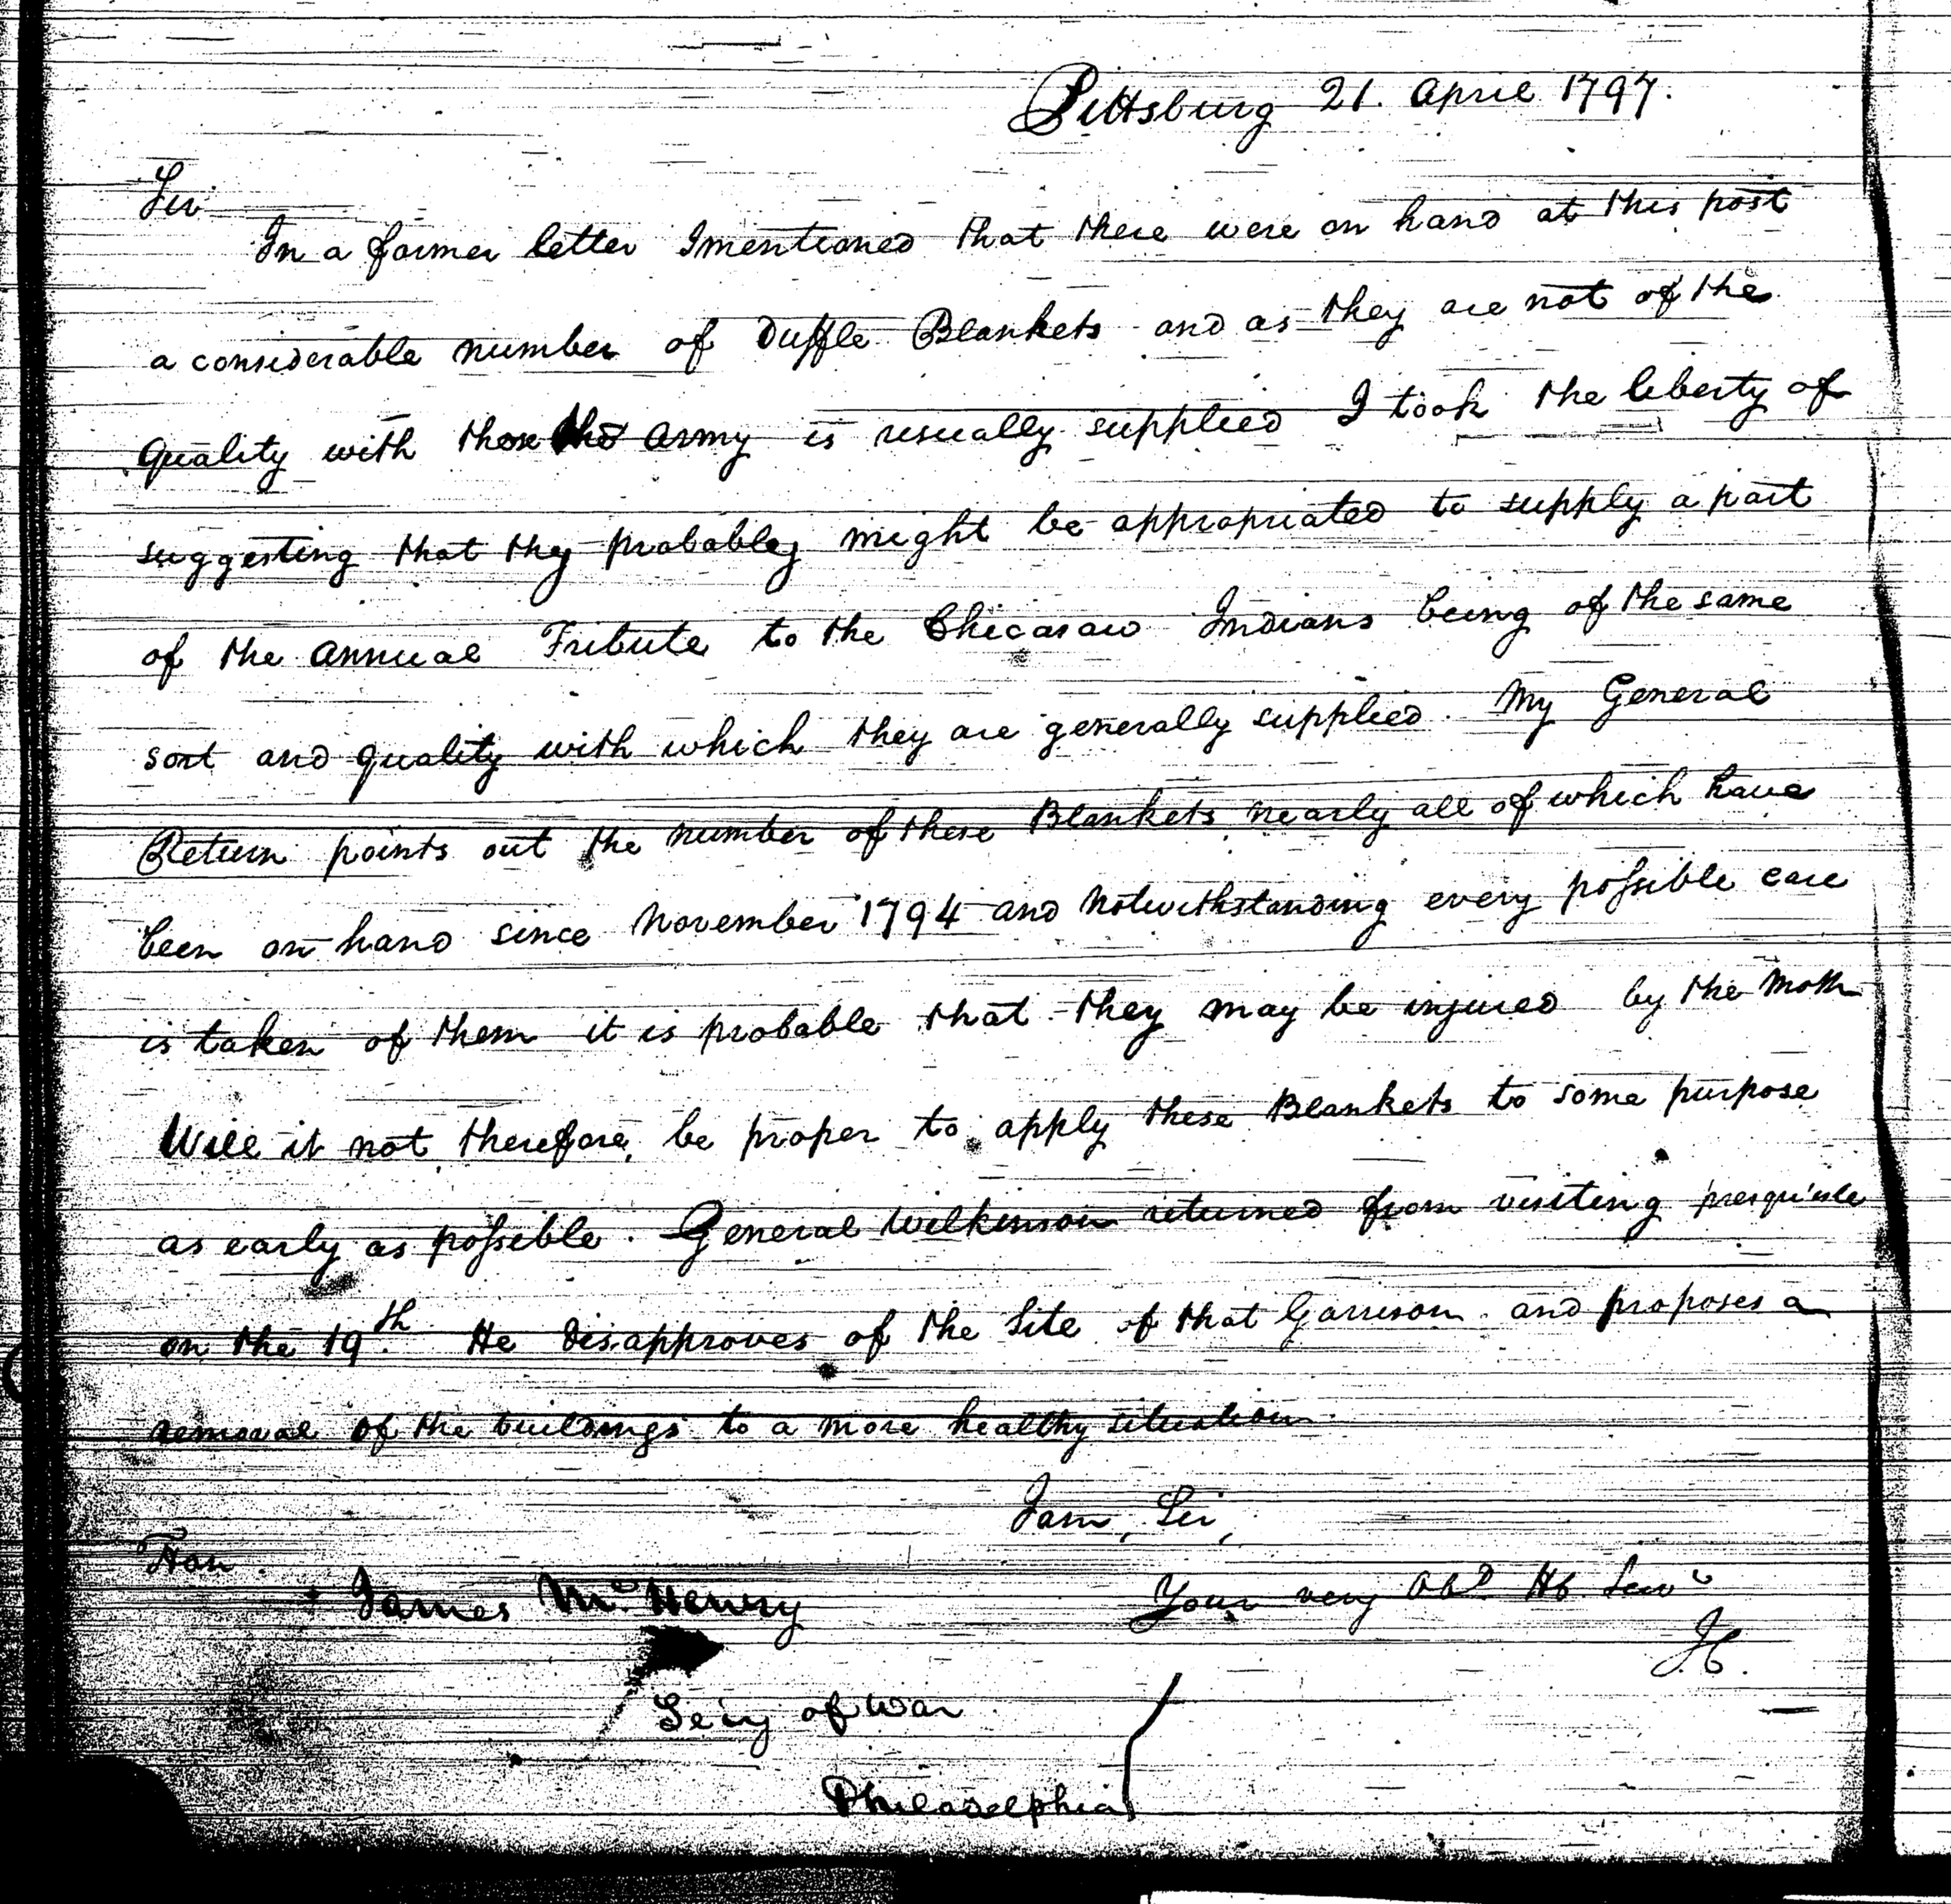 Pittsburg 21. April 1797.
Sir
In a former letter I mentioned that there were on hand at this post
a considerable number of Duffle Blankets and as they are not of the
quality with those the Army is usually supplied I took the liberty of
suggesting that they probabley might be appropriated to supply a part
of the Annual Tribute to the Chicasaw Indians being of the same
sort and quality with which they are generally supplied. My General
Return points out the number of these Blankets nearly all of which have
been on hand since November 1794 and Notwithstanding every possible care
is taken of them it is probable that they may be injured by the Moth
Will it not, therefore, be proper to apply these Blankets to some purpose
as early as possible. General Wilkinson returned from visiting presqu'isle
on the 19th. He disapproves of the Site of that Garrison and proposes a
removal of the buildings to a more healthy situation.
I am, Sir,
Hon.
James McHenry
Your very Obd Hb Serv
Secy of War
Philadelphia